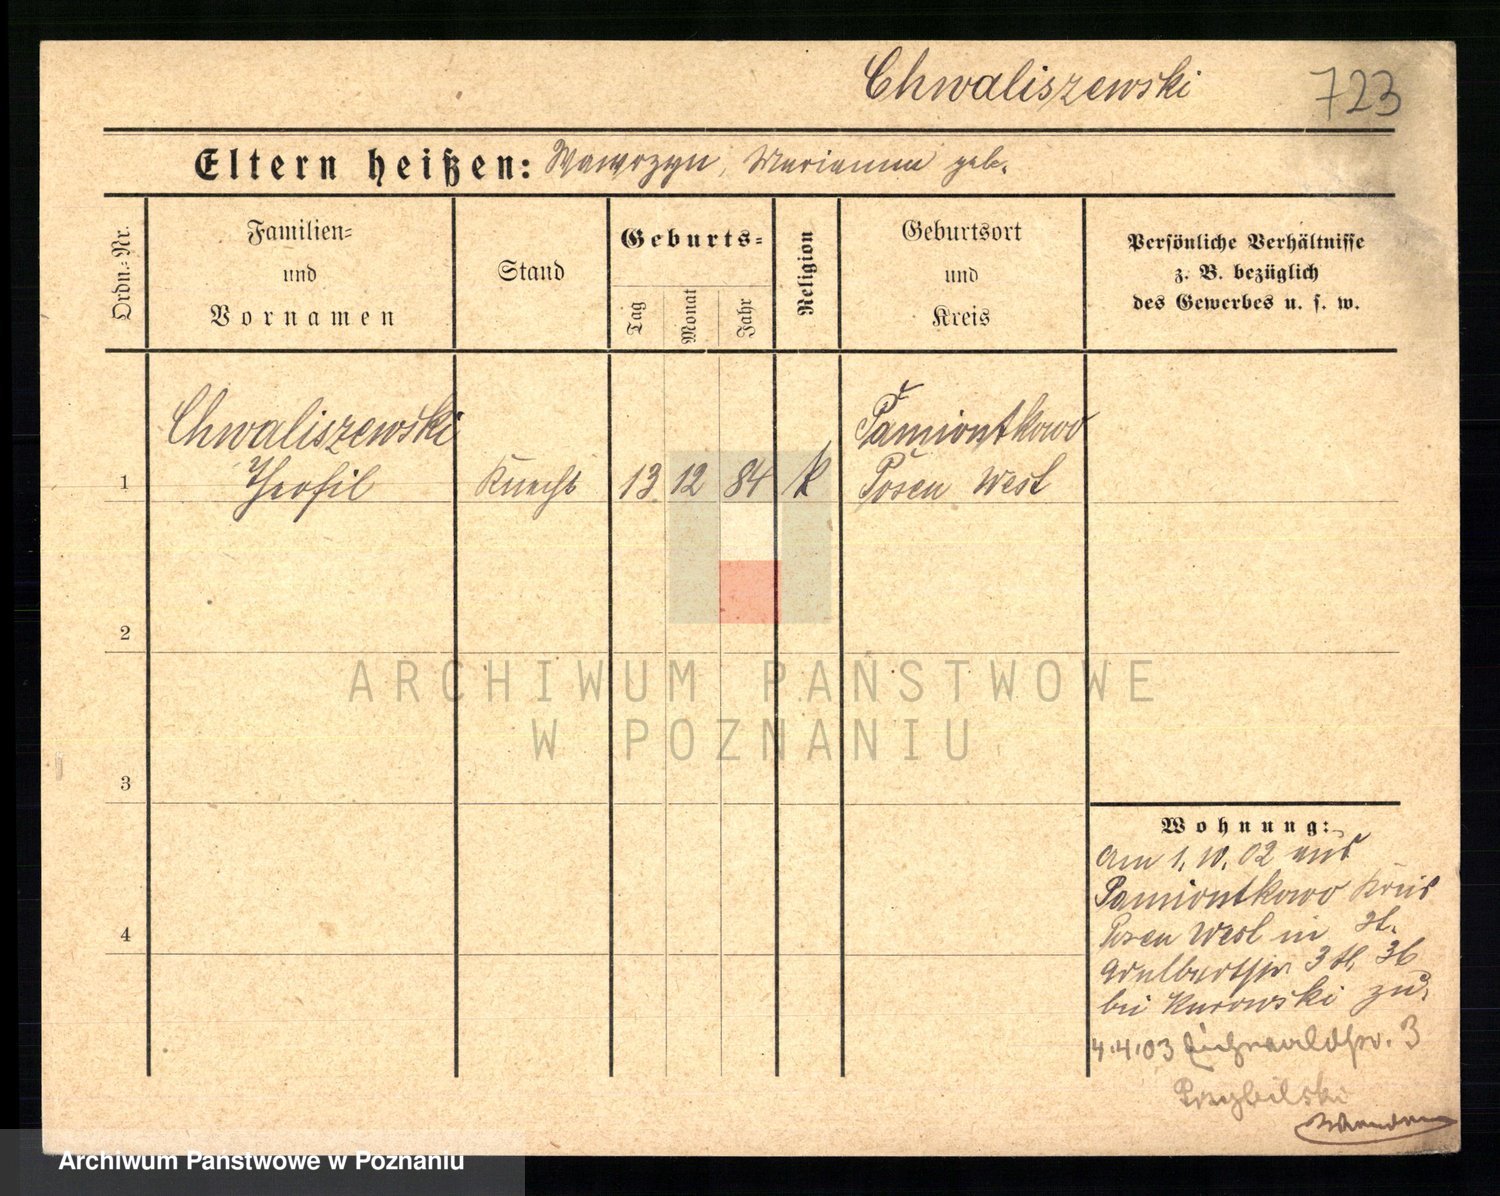 Chwaliszewski 723
Eltern heißen: Wawrzyn, Marianna geb.
Ordn.-Nr.
Familien-
und
Vornamen
Stand
Geburts-
Tag
Monat
Jahr
Religion
Geburtsort
und
Kreis
Persönliche Verhältnisse
z. B. bezüglich
des Gewerbes u. s. w.
Chwaliszewski
1 Theofil Knecht 13 12 84 k
Pamiontkowo
Posen West
2
3
4
Wohnung:
Am 1. 10. 02 aus
Pamiontkowo Kreis
Posen West in St.
Adalbertstr 3
bei Kurowski zu.
4.4.03 Eichwaldstr. 3
ARCHIWUM PAŃSTWOWE
W POZNANIU
Archiwum Państwowe w Poznaniu